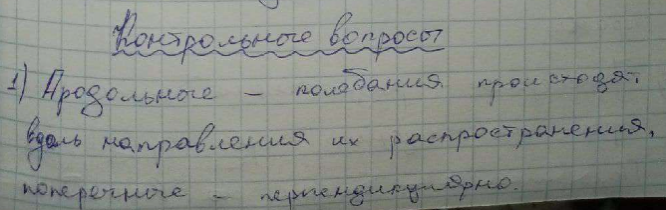 Контрольные вопросы
1) Продольные - колебания происходят
вдоль направления их распространения,
поперечные - перпендикулярно.